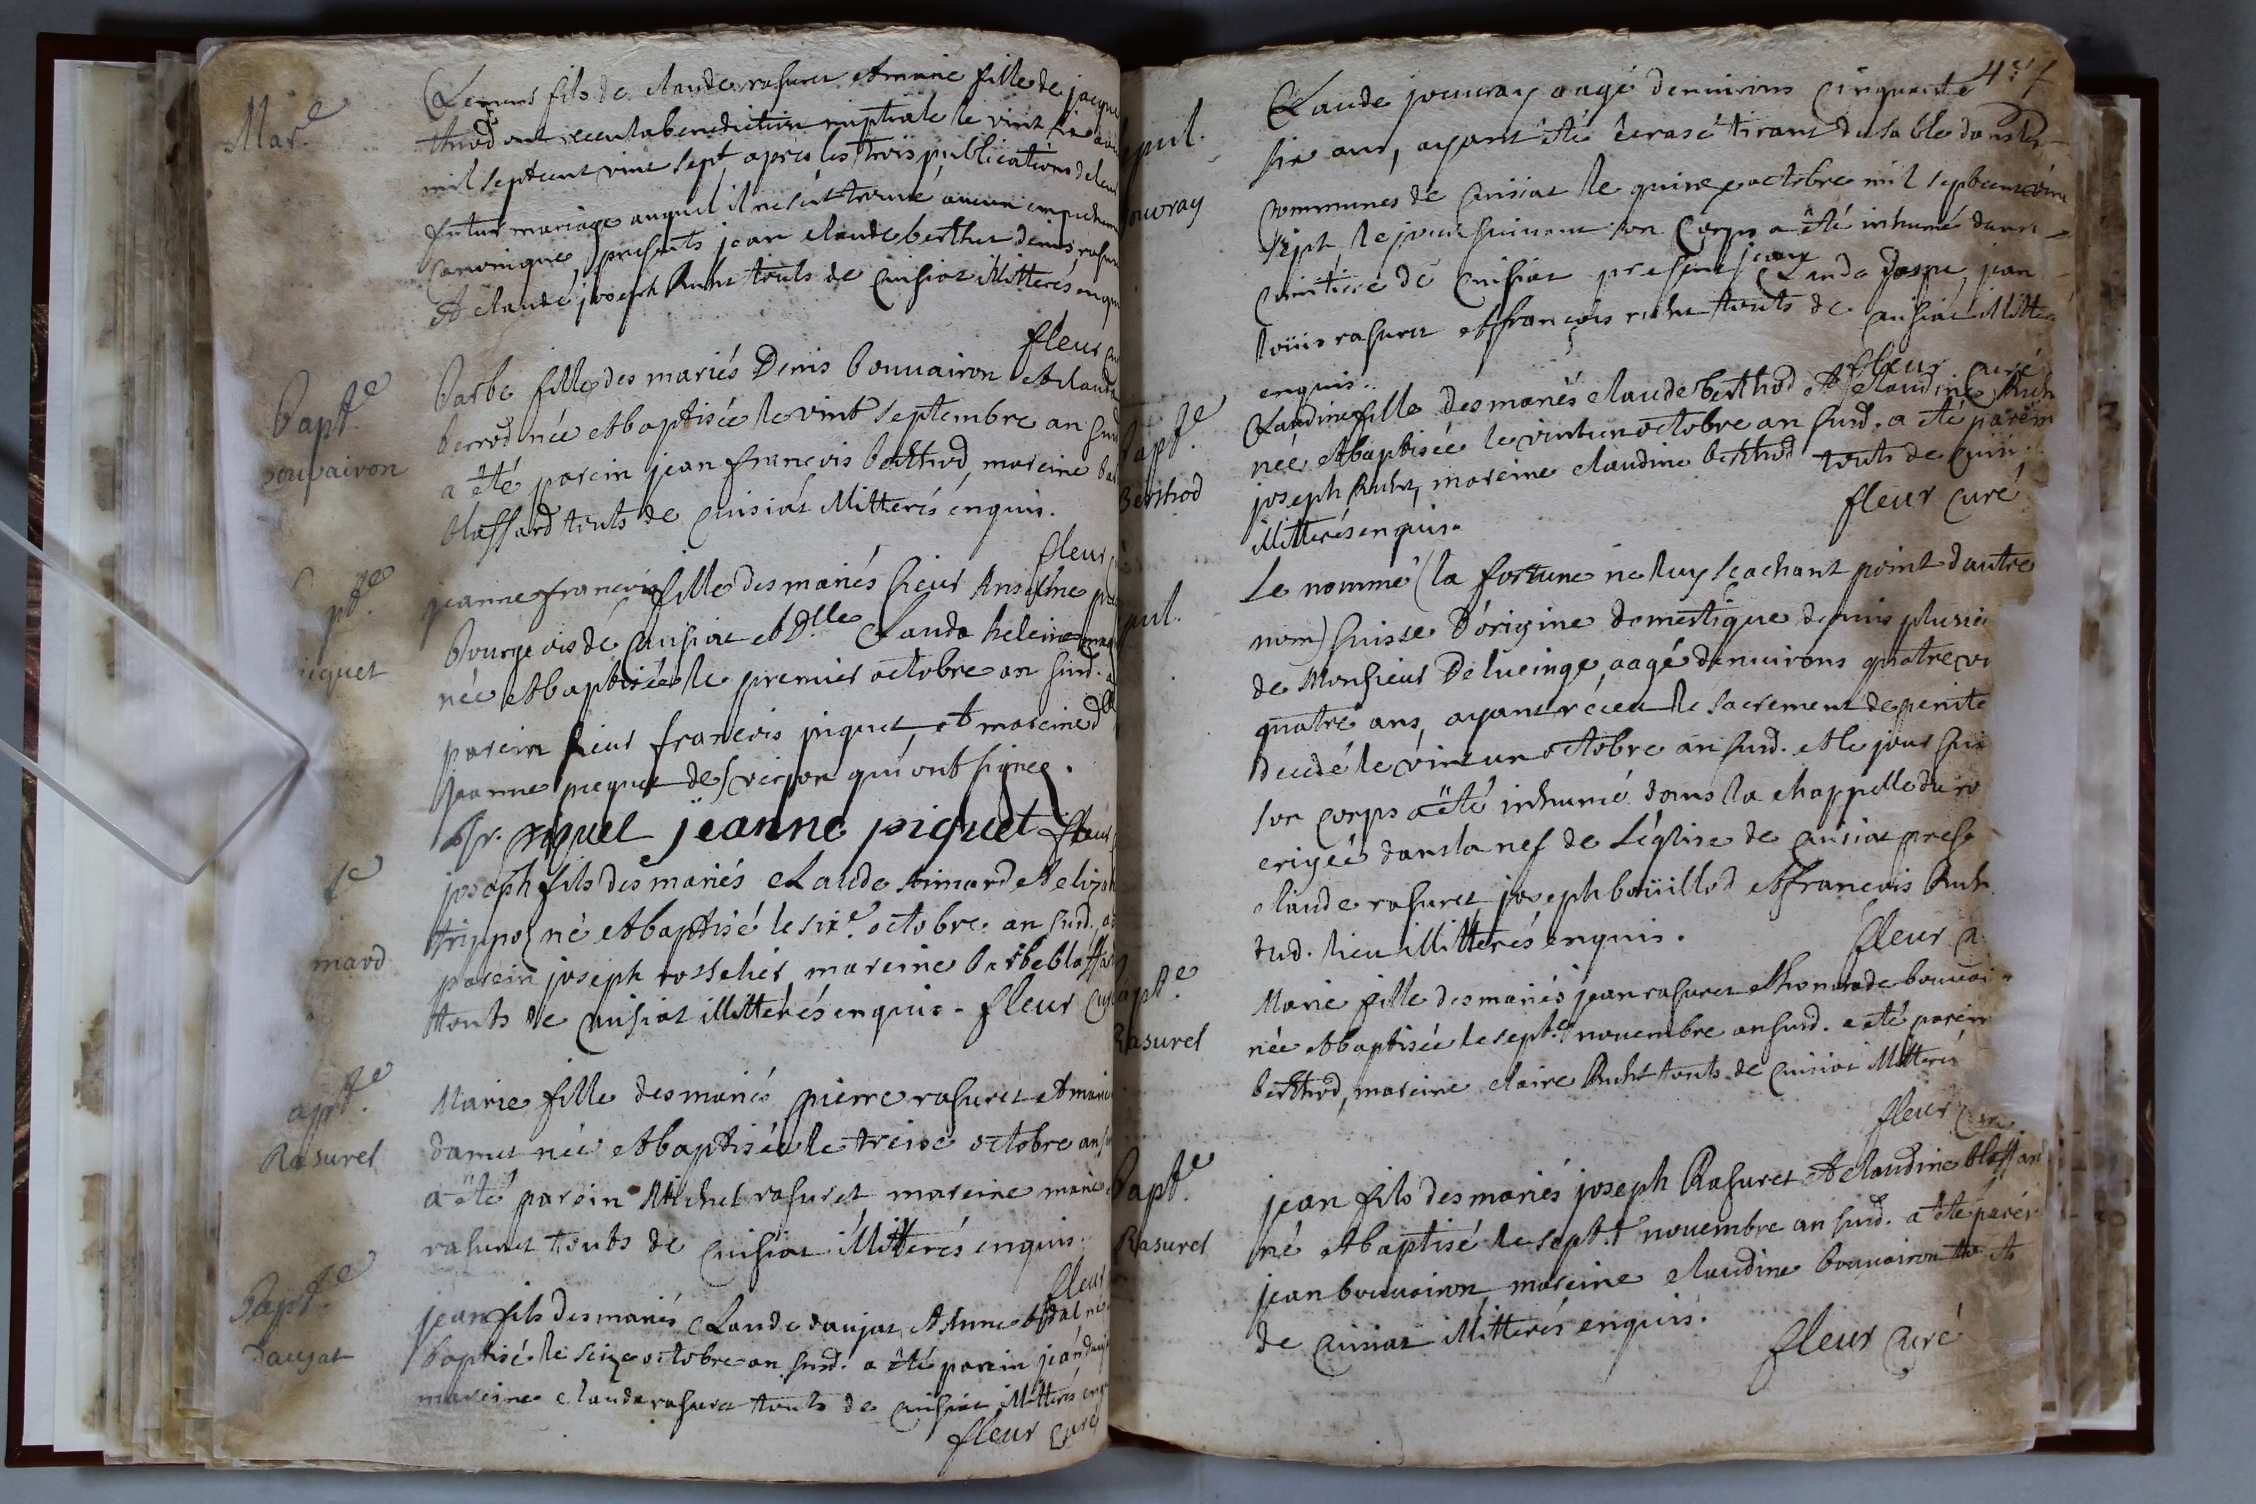 Mar.e
fils de claude rasuret et marie fille de jacque
ont receu la benediction nuptiale le vint six
mil septcent vint sept apres les trois publications de leur
futur mariage auquel il ne s'est trouvé aucun empechem
canonique, presents jean claude berthet denis rasur
et claude joseph Ruhet touts de Cuisiat illitterés enqu
fleur
Bapt.e
bouvairon
barbe fille des mariés Denis bouvairon et clauda
berrod née et baptisée le vint septembre an susd
a été parein jean francois berthod, mareine ba
blaffard touts de cuisiat illitterés enquis.
fleur
pt.e
iquet
jeanne francoise fille des mariés sieur Anselme
Bourgeois de cuisiat et D.lle Clauda heleine
née et baptisée le premier octobre an susd. a
parein sieur francois piquet, et mareine d
jeanne piquet de verjon qui ont signés.
fr. piquet jeanne piquet fleur
t.e
mard
joseph fils des mariés claude simard et
trippoz né et baptisé le six.e octobre an susd. a
parein joseph rosselier mareine barbe blaffar
touts de cuisiat illitterés enquis. fleur cur
apt.e
Rasuret
Marie fille des mariés pierre rasuret et marie
damet née et baptisée le treize octobre an s
a été parein Michel rasuret mareine marie
rasuret touts de cuisiat illitterés enquis.
fleur
Bapt.e
Daujat
jean fils des mariés claude daujat et Anne né
baptisé le seize octobre an susd. a été parein jean dauj
mareine clauda rasuret touts de cuisiat illitterés enqu
fleur curé
epul.
jouvray
Claude jouvray aagé d'environs cinquante
six ans, ayant été ecrasé tirant du sable dans les
communes de cuisiat le quinze octobre mil septcent vint
sept le jour suivant son corps a été inhumé dans
cimitiere de cuisiat present jean Claude jean
loüis rasuret et françois ruhet touts de cuisiat illitte
enquis..
fleur curé
Bapt.e
Berthod
Claudine fille des mariés claude berthod et claudine Ruh
née et baptisée le vint un octobre an susd. a été parein
joseph Ruhet, mareine claudine berthod touts de cuisi
illitterés enquis.
fleur curé
pul.
Le nommé (la fortune ne luy scachant point d'autre
nom) suisse d'origine domestique depuis plusie
de Monsieur De lucinge, aagé d'environs quatre vi
quatre ans, ayant receu le sacrement de penite
decedé le vint un octobre an susd. et le jour sui
son corps a été inhumé dans la chappelle du ro
erigée dans la nef de l'église de cuisiat prese
claude rasuret, joseph boüillod et francois Ruh
dud. lieu illitterés enquis.
fleur c
Bapt.e
Rasuret
Marie fille des mariés jean rasuret et honorade bouvai
née et baptisée le sept.e novembre an susd. a été parein
berthod, mareine claire Ruhet touts de cuisiat illitterés
fleur cur
Bapt.e
Rasuret
jean fils des mariés joseph Rasuret et claudine blaffard
né et baptisé le sept.e novembre an susd. a été parein
jean bouvairon mareine claudine bouvairon
de cuisiat illitterés enquis.
fleur curé